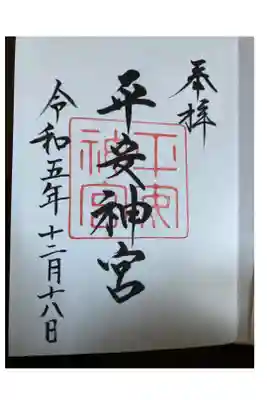 奉拝
平安神宮
平安神宮
令和五年十二月十八日